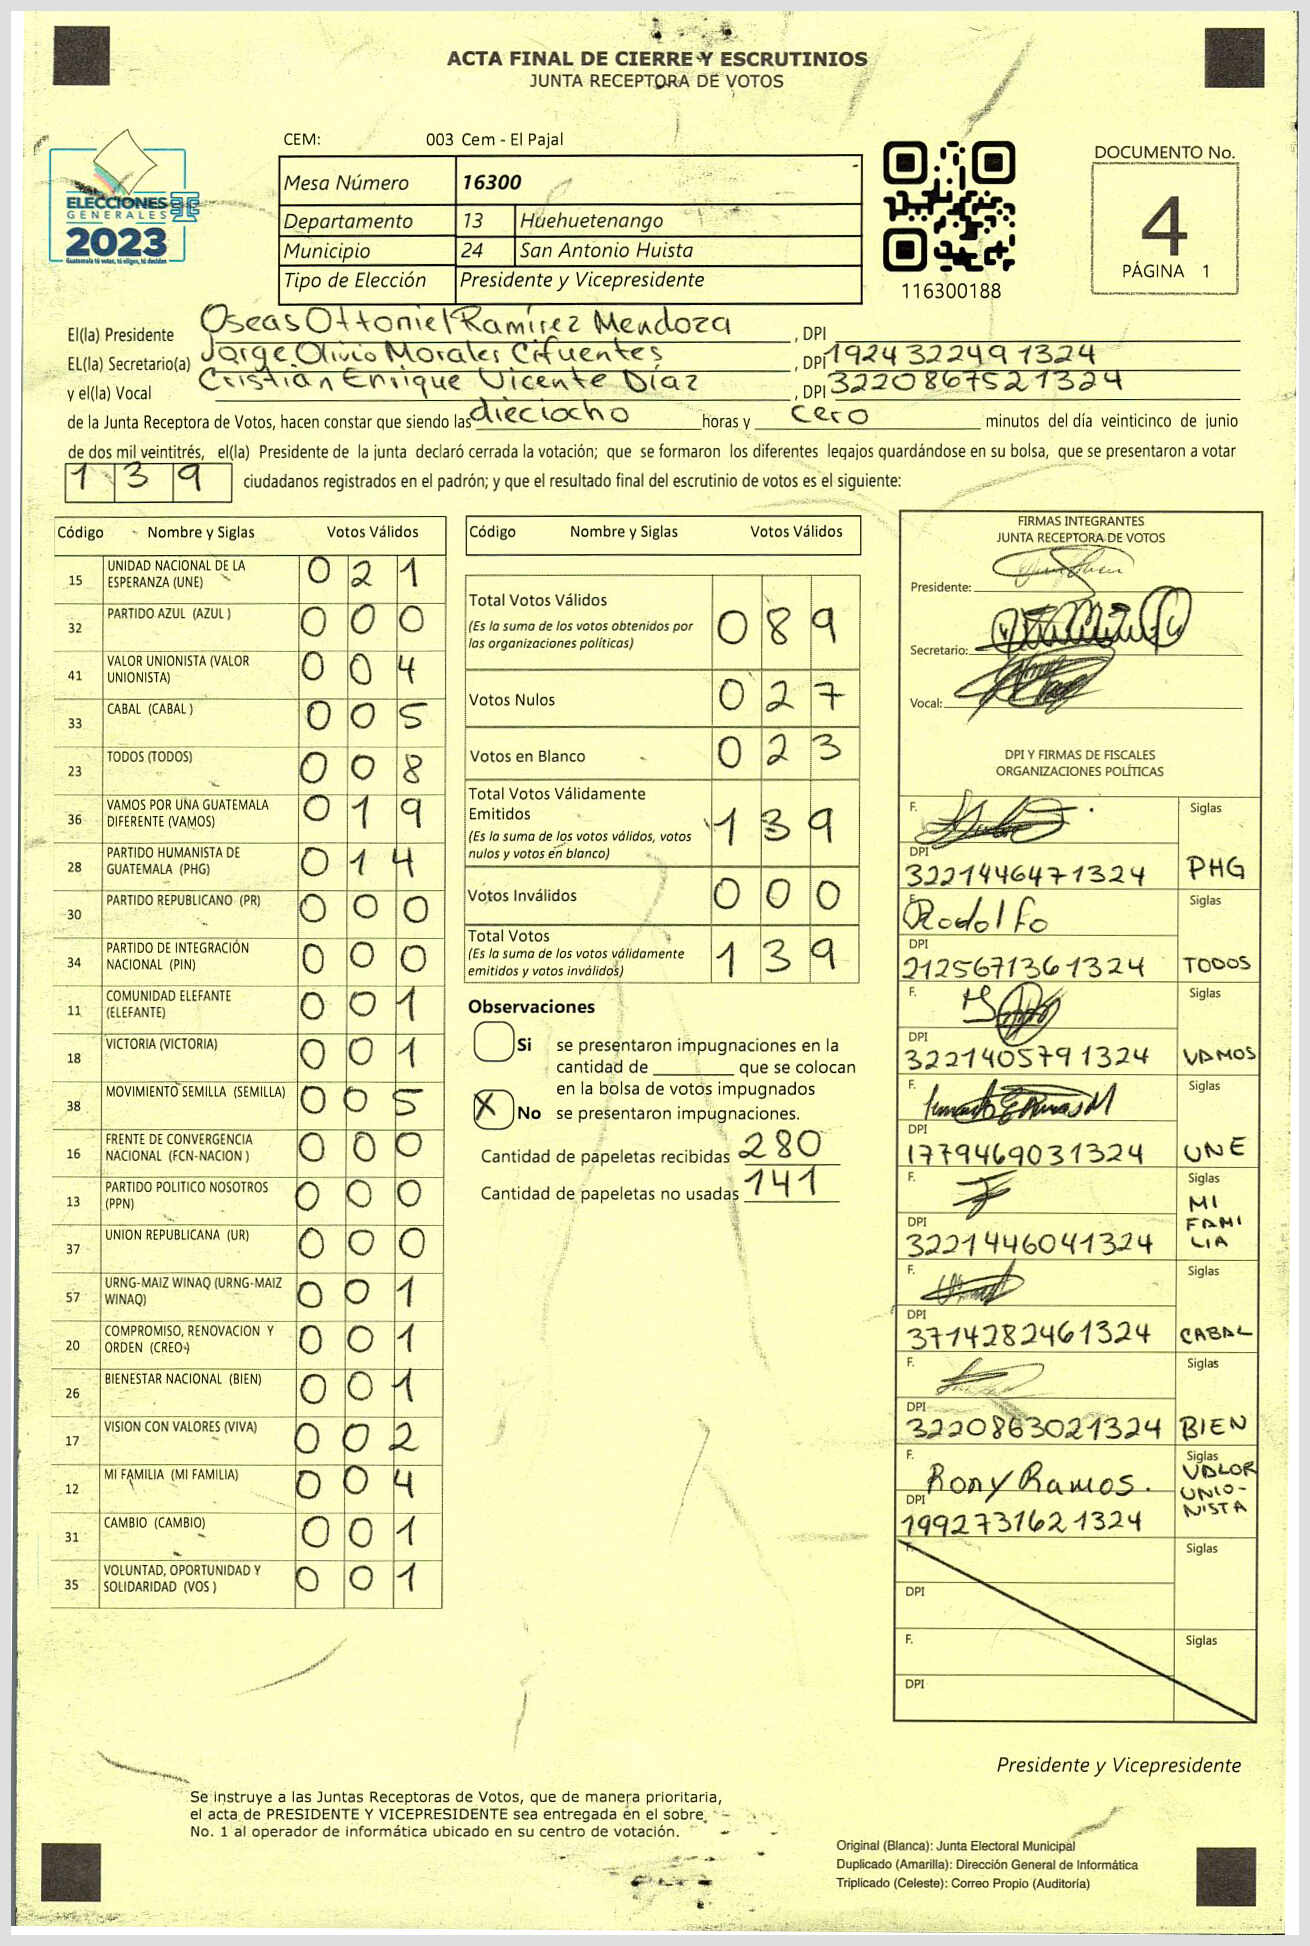 ACTA FINAL DE CIERRE Y ESCRUTINIOS
JUNTA RECEPTORA DE VOTOS
ELECCIONES
GENERALES
2023
Guatemala tú votas, tú eliges, tú decides
CEM: 003 Cem - El Pajal
Mesa Número 16300
Departamento 13 Huehuetenango
Municipio 24 San Antonio Huista
Tipo de Elección Presidente y Vicepresidente
116300188
DOCUMENTO No.
4
PÁGINA 1
El(la) Presidente Oseas Ottoniel Ramírez Mendoza, DPI
EL(la) Secretario(a) Jorge Olivio Morales Cifuentes, DPI 1924322491324
y el(la) Vocal Cristian Enrique Vicente Díaz, DPI 3220867521324
de la Junta Receptora de Votos, hacen constar que siendo las dieciocho horas y cero minutos del día veinticinco de junio
de dos mil veintitrés, el(la) Presidente de la junta declaró cerrada la votación; que se formaron los diferentes legajos guardándose en su bolsa, que se presentaron a votar
139 ciudadanos registrados en el padrón; y que el resultado final del escrutinio de votos es el siguiente:
Código Nombre y Siglas Votos Válidos
15 UNIDAD NACIONAL DE LA ESPERANZA (UNE) 021
32 PARTIDO AZUL (AZUL ) 000
41 VALOR UNIONISTA (VALOR UNIONISTA) 004
33 CABAL (CABAL ) 005
23 TODOS (TODOS) 008
36 VAMOS POR UNA GUATEMALA DIFERENTE (VAMOS) 019
28 PARTIDO HUMANISTA DE GUATEMALA (PHG) 014
30 PARTIDO REPUBLICANO (PR) 000
34 PARTIDO DE INTEGRACIÓN NACIONAL (PIN) 000
11 COMUNIDAD ELEFANTE (ELEFANTE) 001
18 VICTORIA (VICTORIA) 001
38 MOVIMIENTO SEMILLA (SEMILLA) 005
16 FRENTE DE CONVERGENCIA NACIONAL (FCN-NACION ) 000
13 PARTIDO POLITICO NOSOTROS (PPN) 000
37 UNION REPUBLICANA (UR) 000
57 URNG-MAIZ WINAQ (URNG-MAIZ WINAQ) 001
20 COMPROMISO, RENOVACION Y ORDEN (CREO) 001
26 BIENESTAR NACIONAL (BIEN) 001
17 VISION CON VALORES (VIVA) 002
12 MI FAMILIA (MI FAMILIA) 004
31 CAMBIO (CAMBIO) 001
35 VOLUNTAD, OPORTUNIDAD Y SOLIDARIDAD (VOS ) 001
Código Nombre y Siglas Votos Válidos
Total Votos Válidos 089
(Es la suma de los votos obtenidos por
las organizaciones políticas)
Votos Nulos 027
Votos en Blanco 023
Total Votos Válidamente
Emitidos 139
(Es la suma de los votos válidos, votos
nulos y votos en blanco)
Votos Inválidos 000
Total Votos 139
(Es la suma de los votos válidamente
emitidos y votos inválidos)
Observaciones
Si se presentaron impugnaciones en la
cantidad de ________ que se colocan
en la bolsa de votos impugnados
X No se presentaron impugnaciones.
Cantidad de papeletas recibidas 280
Cantidad de papeletas no usadas 141
FIRMAS INTEGRANTES
JUNTA RECEPTORA DE VOTOS
Presidente:
Secretario:
Vocal:
DPI Y FIRMAS DE FISCALES
ORGANIZACIONES POLÍTICAS
F. Siglas
DPI
3221446471324 PHG
F. Rodolfo Siglas
DPI
2125671361324 TODOS
F. Siglas
DPI
3221405791324 VAMOS
F. Siglas
DPI
1779469031324 UNE
F. Siglas
DPI MI FAMI LIA
3221446041324
F. Siglas
DPI
3714282461324 CABAL
F. Siglas
DPI
3220863021324 BIEN
F. Rony Ramos. Siglas
DPI VALOR UNIO- NISTA
1992731621324
F. Siglas
DPI
F. Siglas
DPI
Presidente y Vicepresidente
Se instruye a las Juntas Receptoras de Votos, que de manera prioritaria,
el acta de PRESIDENTE Y VICEPRESIDENTE sea entregada en el sobre
No. 1 al operador de informática ubicado en su centro de votación.
Original (Blanca): Junta Electoral Municipal
Duplicado (Amarilla): Dirección General de Informática
Triplicado (Celeste): Correo Propio (Auditoría)